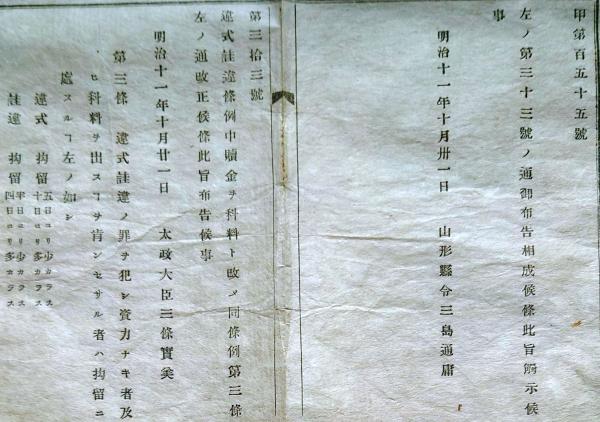 甲第百五十五號
左ノ第三十三號ノ通御布告相成候條此旨諭示候
事
明治十一年十月卅一日　山形縣令三島通庸
第三拾三號
違式詿違條例中贖金ヲ科料ト改メ同條例第三條
左ノ通改正候條此旨布告候事
明治十一年十月廿一日　太政大臣三條實美
第三條　違式詿違ノ罪ヲ犯シ資力ナキ者及
ヒ科料ヲ出スヿヲ肯ンセサル者ハ拘留ニ
處スルヿ左ノ如シ
違式　拘留　五日ヨリ少カラス十日ヨリ多カラス
詿違　拘留　半日ヨリ少カラス四日ヨリ多カラス